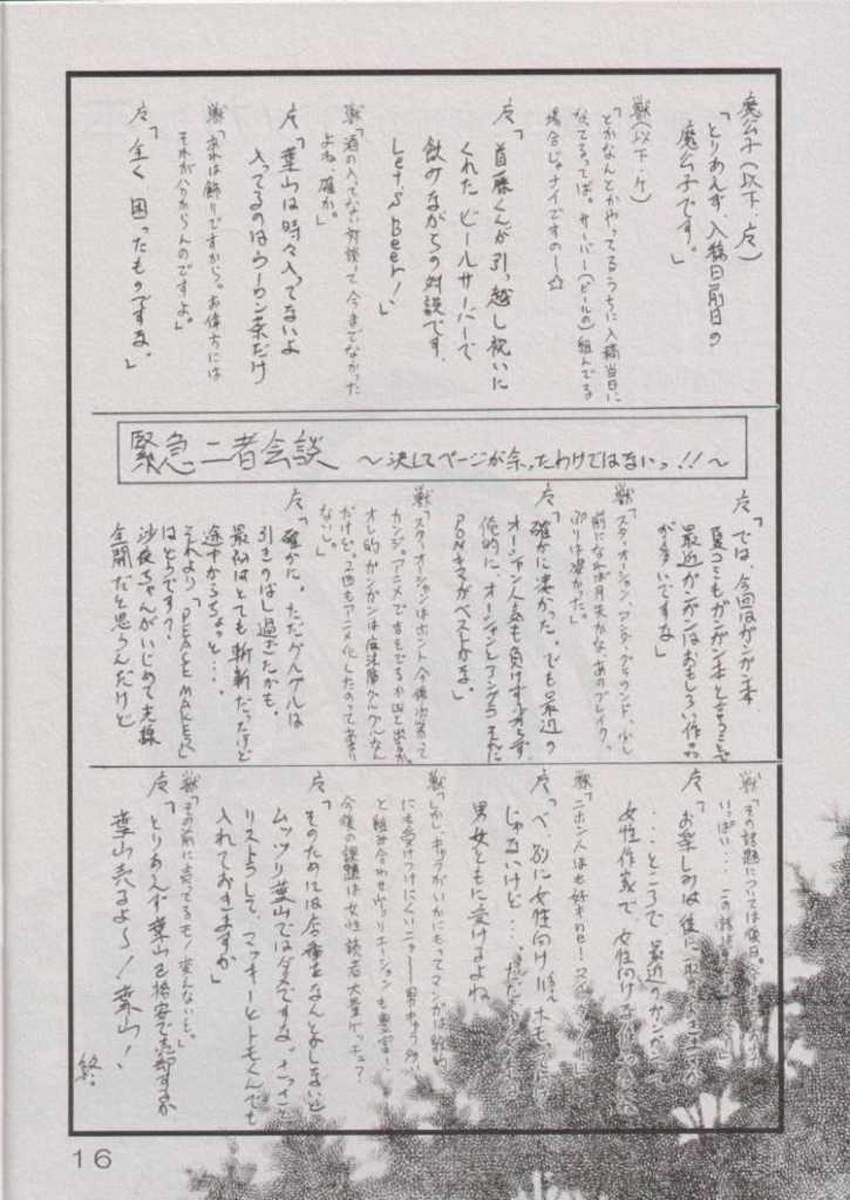 魔公子(以下、左)
「とりあえず、入稿日前日の
魔公子です。」
獣(以下、ケ)
「とかなんとかやってるうちに入稿当日に
なってるってば。サーバー(ビールの)組んでる
場合じゃナイですのー☆
左「首藤くんが引っ越し祝いに
くれたビールサーバーで
飲みながらの対談です。
Let's Beer!」
獣「酒の入ってない対談って今までなかった
よね、確か。」
左「葉山は時々入ってないよ
入ってるのはウーロン茶だけ
獣「あれは飾りですから。お偉方には
それがわからんのですよ。」
左「全く困ったものですな。」
緊急二者会談 ～決してページが余ったわけではないっ!!～
左「では、今回はガンガン本
夏コミもガンガン本ということで
最近ガンガンはおもしろい作品
が多いですな」
獣「スターオーシャン、アンダーグラウンド、少し
前になれば月天かな、あのブレイク
ぶりは凄かった。」
左「確かに凄かった。でも最近の
オーシャン人気も負けず劣らず
俺的に、オーシャンとアングラ、それに
PONキマがベストかな。」
獣「スターオーシャンはホント今後次第って
カンジ。アニメで吉もでるか凶と出るか。
オレ的ガンガンは魔法陣グルグルなん
だけど。2回もアニメ化したのってあまり
ないし。」
左「確かに。ただグルグルは
引きのばし過ぎたかも。
最初はとても斬新だったけど
途中からちょっと・・・。
それより「PEACE MAKER」
はどうです?
沙夜ちゃんがいじめて光線
全開だと思うんだけど
獣「その話題については後日。
いっぱい・・・この話
左「お楽しみは後に取っておきます
・・・ところで最近のガンガンって
女性作家で女性向け
獣「ニホン人はお好きねぇ!
左「べ、別に女性向け
じゃないけど・・・。ただ
男女ともに受けるよね
獣「しかし、キャラがいかにもってマンガは
にも受けつけにくいニャー
と組み合わせヴァリエーションも豊富!
今後の課題は女性読者大量ゲッチュ?
左「そのためには店番をなんとかしないと
ムッツリ葉山ではダメですな。さっさと
リストラして、マッキーとトモくんでも
入れておきますか」
獣「その前に売ってるモノ変えないと。」
左「とりあえず葉山を格安で売却するか
葉山売るよ～!葉山!
終
16